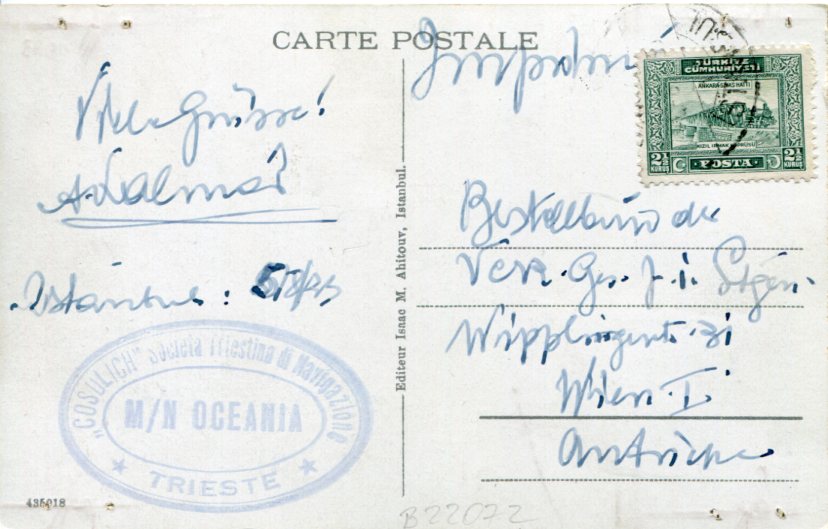 CARTE POSTALE
Viele Grüsse!
Istanbul:
"COSULICH" Società Triestina di Navigazione
M/N OCEANIA
★ TRIESTE ★
435018
Editeur Isaac M. Ahitouv, Istanbul.
TÜRKİYE
CÜMHURİYETİ
ANKARA-SIVAS HATTI
KIZIL IRMAK KÖPRÜSÜ
2½ KURUŞ POSTA 2½ KURUŞ
Vers. Ges. f. i.
Wipplingerstr. 31
Wien. I.
Autriche
B22072